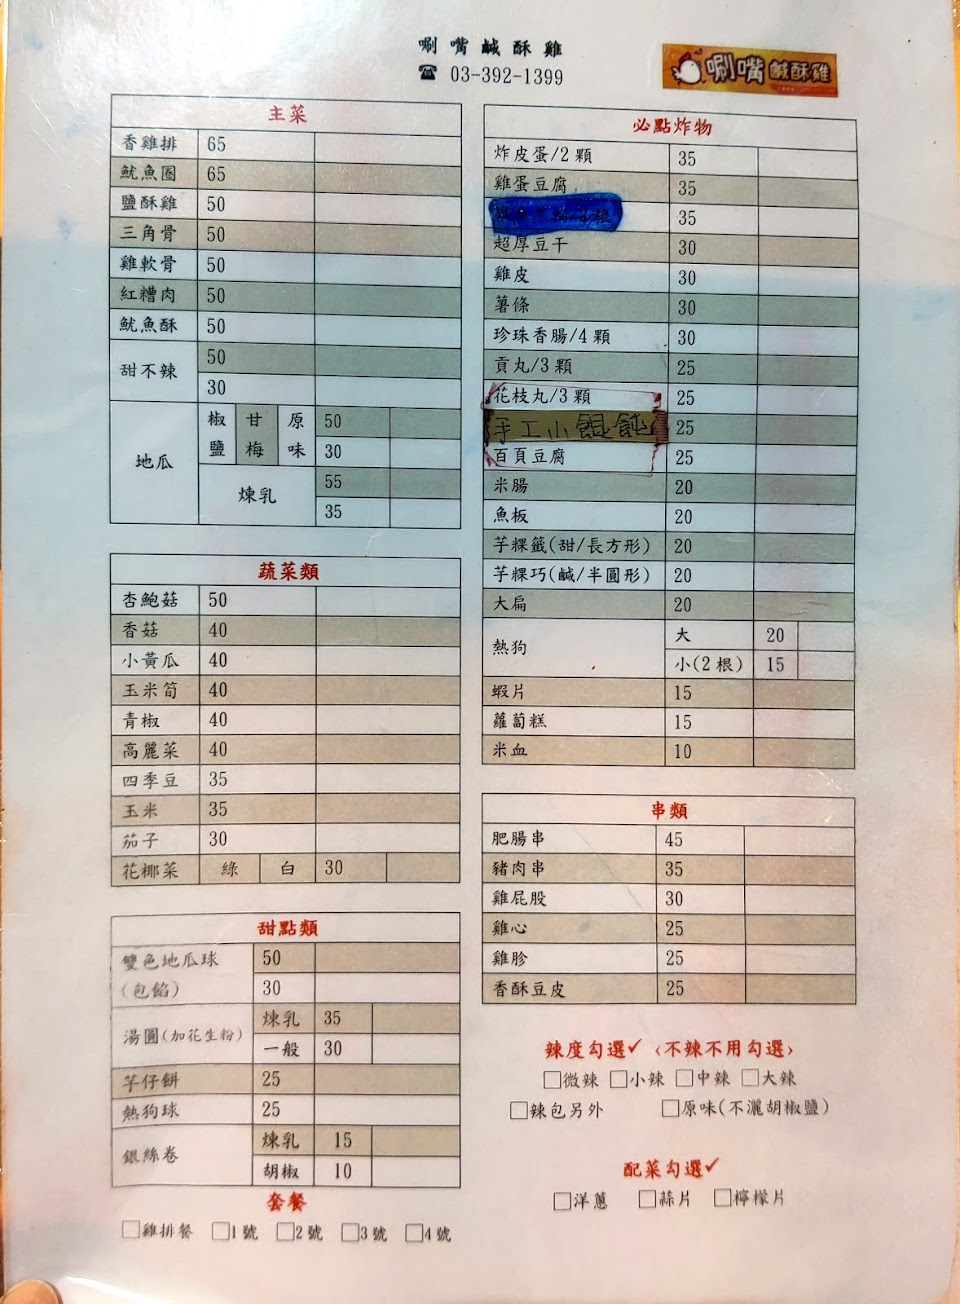 唰嘴鹹酥雞
☎ 03-392-1399
唰嘴鹹酥雞
主菜
香雞排 65
魷魚圈 65
鹽酥雞 50
三角骨 50
雞軟骨 50
紅糟肉 50
魷魚酥 50
甜不辣 50
30
地瓜 椒鹽 甘梅 原味 50
30
煉乳 55
35
蔬菜類
杏鮑菇 50
香菇 40
小黃瓜 40
玉米筍 40
青椒 40
高麗菜 40
四季豆 35
玉米 35
茄子 30
花椰菜 綠 白 30
甜點類
雙色地瓜球(包餡) 50
30
湯圓(加花生粉) 煉乳 35
一般 30
芋仔餅 25
熱狗球 25
銀絲卷 煉乳 15
胡椒 10
套餐
□雞排餐 □1號 □2號 □3號 □4號
必點炸物
炸皮蛋/2顆 35
雞蛋豆腐 35
35
超厚豆干 30
雞皮 30
薯條 30
珍珠香腸/4顆 30
貢丸/3顆 25
花枝丸/3顆 25
手工小餛飩 25
百頁豆腐 25
米腸 20
魚板 20
芋粿籤(甜/長方形) 20
芋粿巧(鹹/半圓形) 20
大扁 20
熱狗 大 20
小(2根) 15
蝦片 15
蘿蔔糕 15
米血 10
串類
肥腸串 45
豬肉串 35
雞屁股 30
雞心 25
雞胗 25
香酥豆皮 25
辣度勾選✓〈不辣不用勾選〉
□微辣 □小辣 □中辣 □大辣
□辣包另外 □原味(不灑胡椒鹽)
配菜勾選✓
□洋蔥 □蒜片 □檸檬片